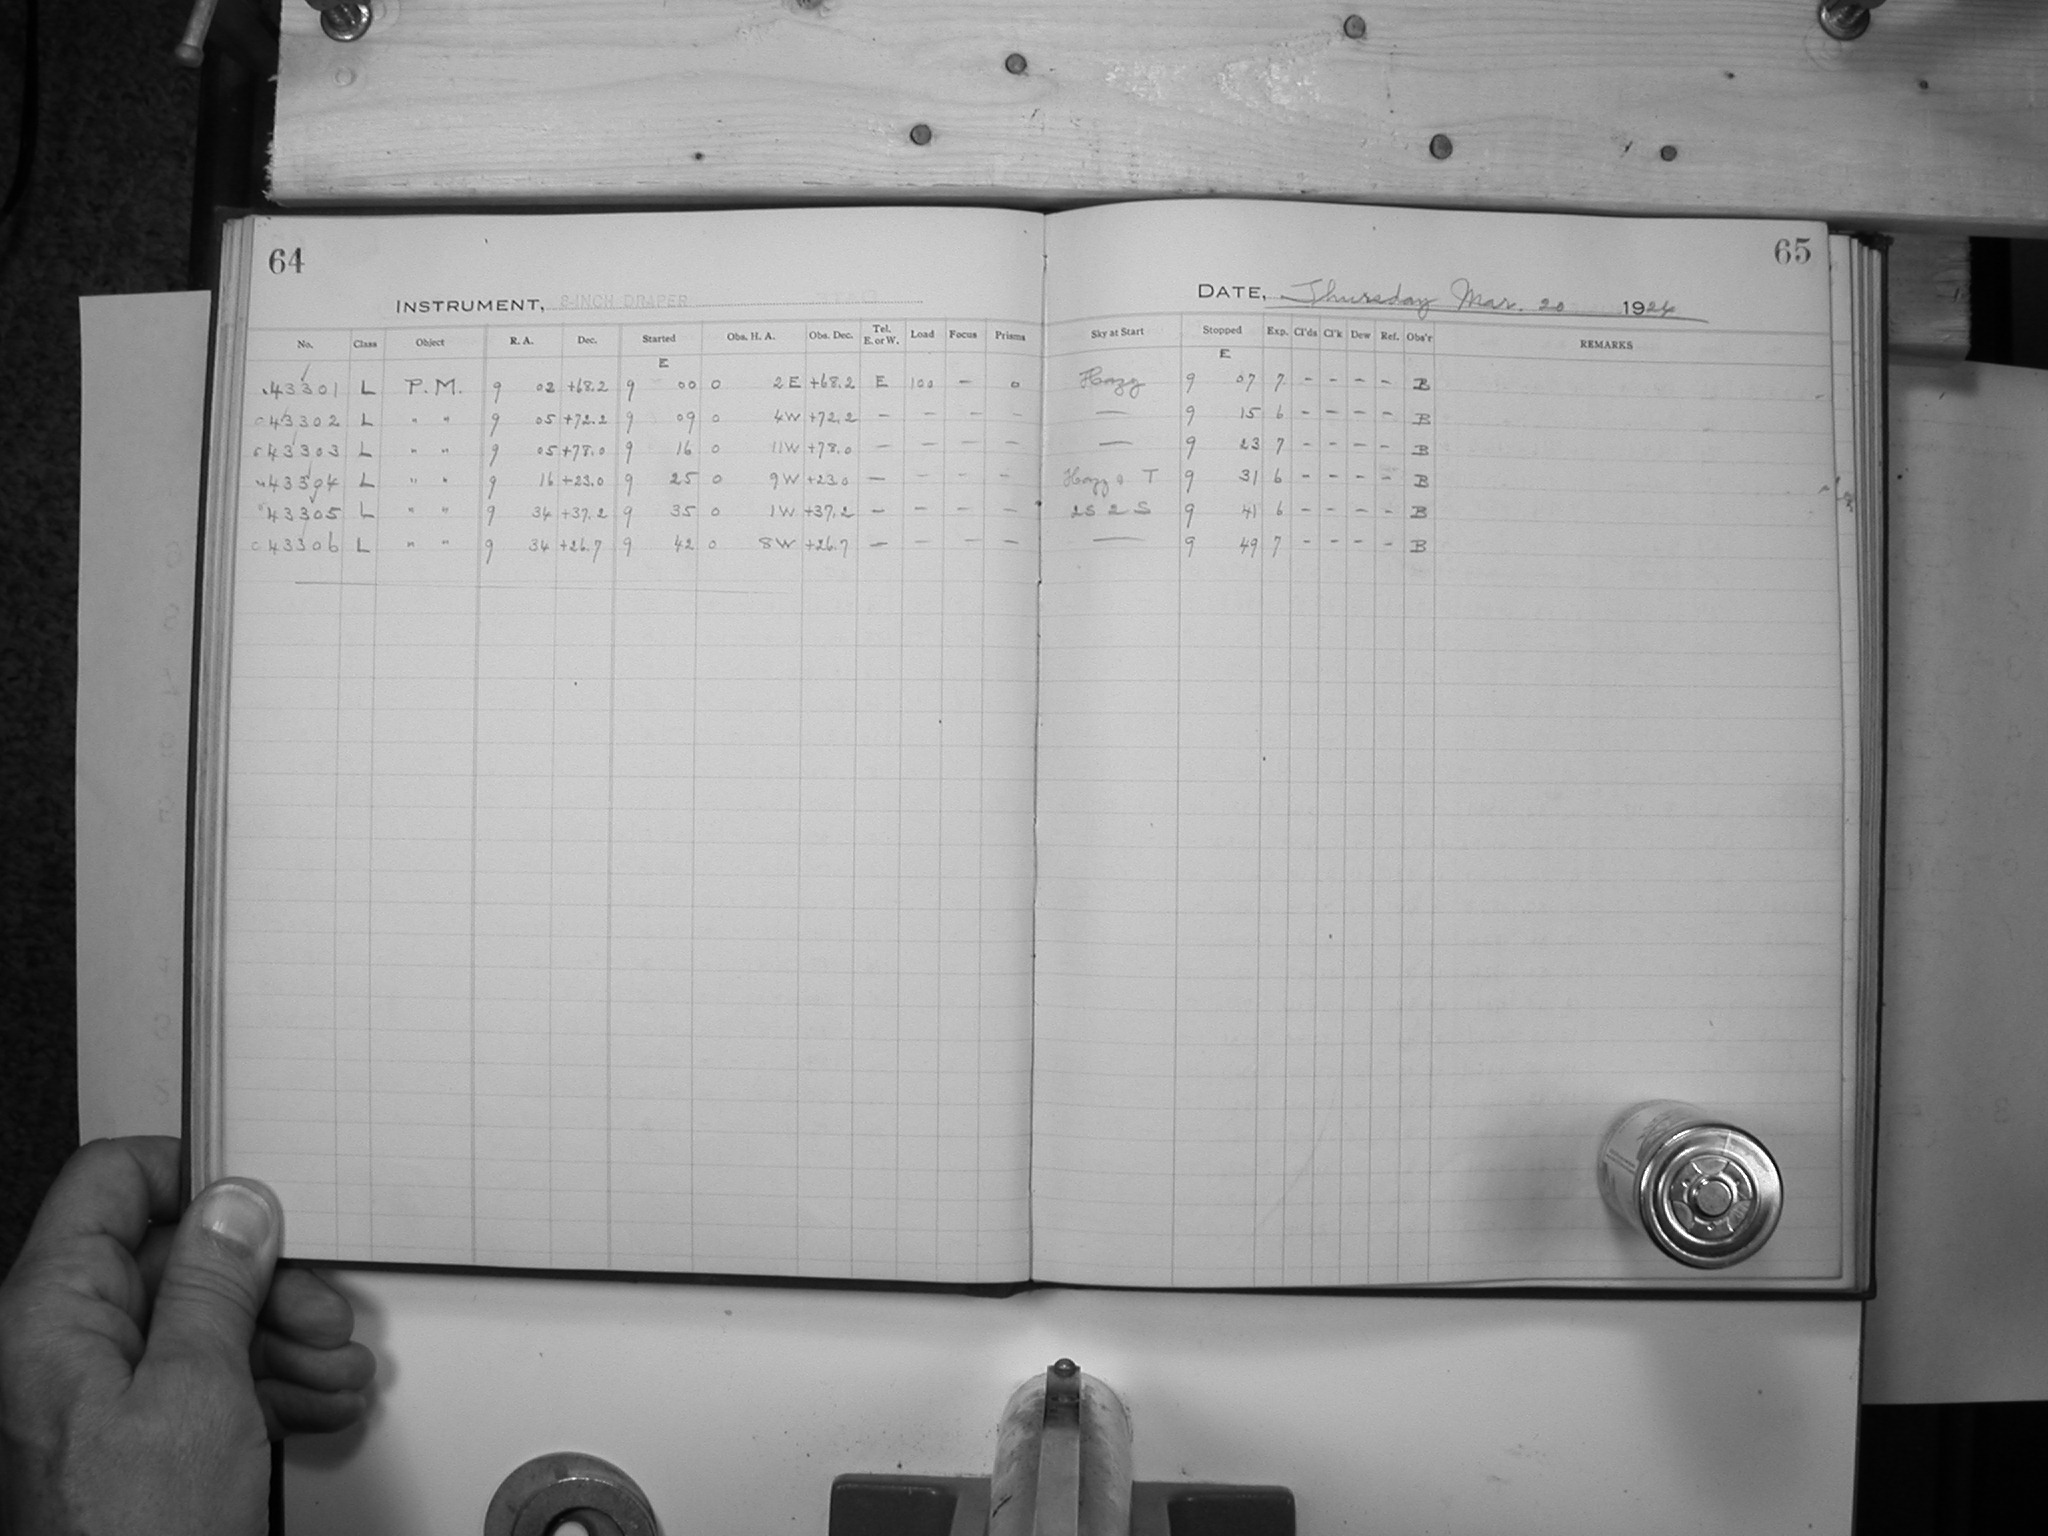 64
65
INSTRUMENT, 8-INCH DRAPER
DATE, Thursday Mar. 20 1924
No. Class Object R. A. Dec. Started Obs. H. A. Obs. Dec. Tel. E. or W. Load Focus Prisms Sky at Start Stopped Exp. Cl'ds Cl'k Dew Ref. Obs'r REMARKS
E E
43301 L P.M. 9 02 +68.2 9 00 0 2 E +68.2 E 100 - 0 Hazy 9 07 7 - - - - B
43302 L " " 9 05 +72.2 9 09 0 4 W +72.2 - - - - — 9 15 6 - - - - B
43303 L " " 9 05 +78.0 9 16 0 11 W +78.0 - - - - — 9 23 7 - - - - B
43304 L " " 9 16 +23.0 9 25 0 9 W +23.0 - - - - Hazy & T 9 31 6 - - - - B
43305 L " " 9 34 +37.2 9 35 0 1 W +37.2 - - - - 2S 2 S 9 41 6 - - - - B
43306 L " " 9 34 +26.7 9 42 0 8 W +26.7 - - - - — 9 49 7 - - - - B